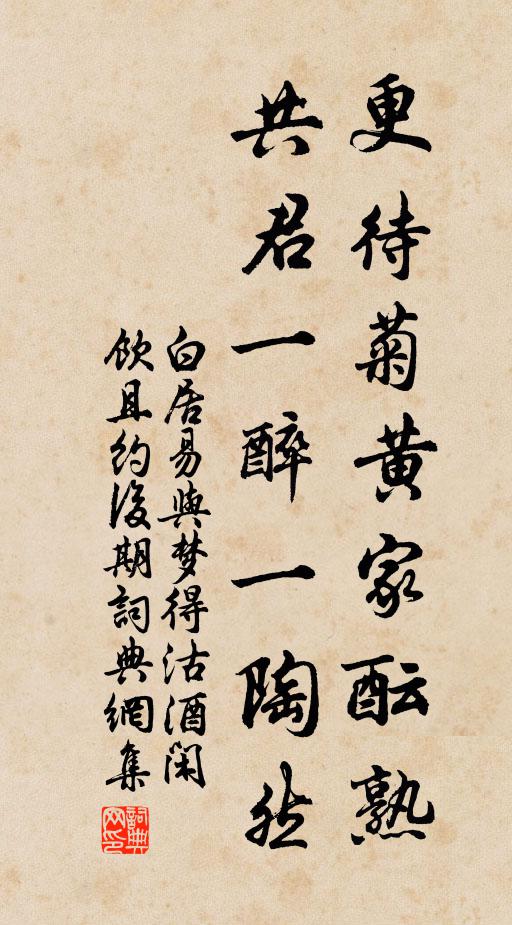 更待菊黄家酝熟
共君一醉一陶然
白居易與梦得沽酒闲
飲且约後期詞典網集
詞典网印